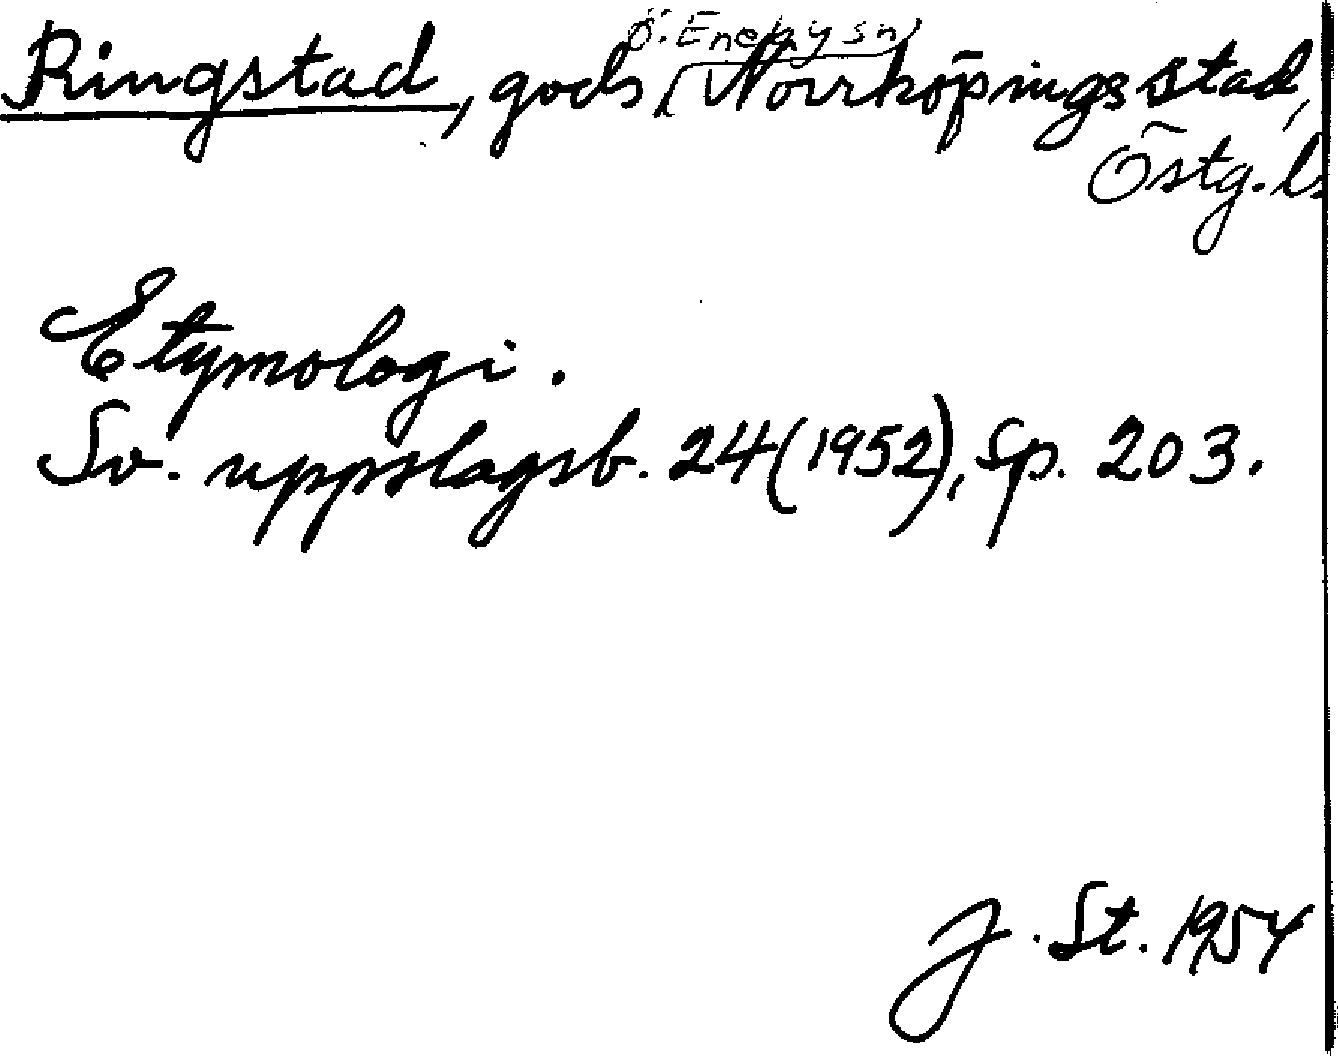 Ö. Eneby sn,
Ringstad, gods, Norrköpings stad,
Östg. l.
Etymologi.
Sv. uppslagsb. 24 (1952), sp. 203.
J. St. 1954